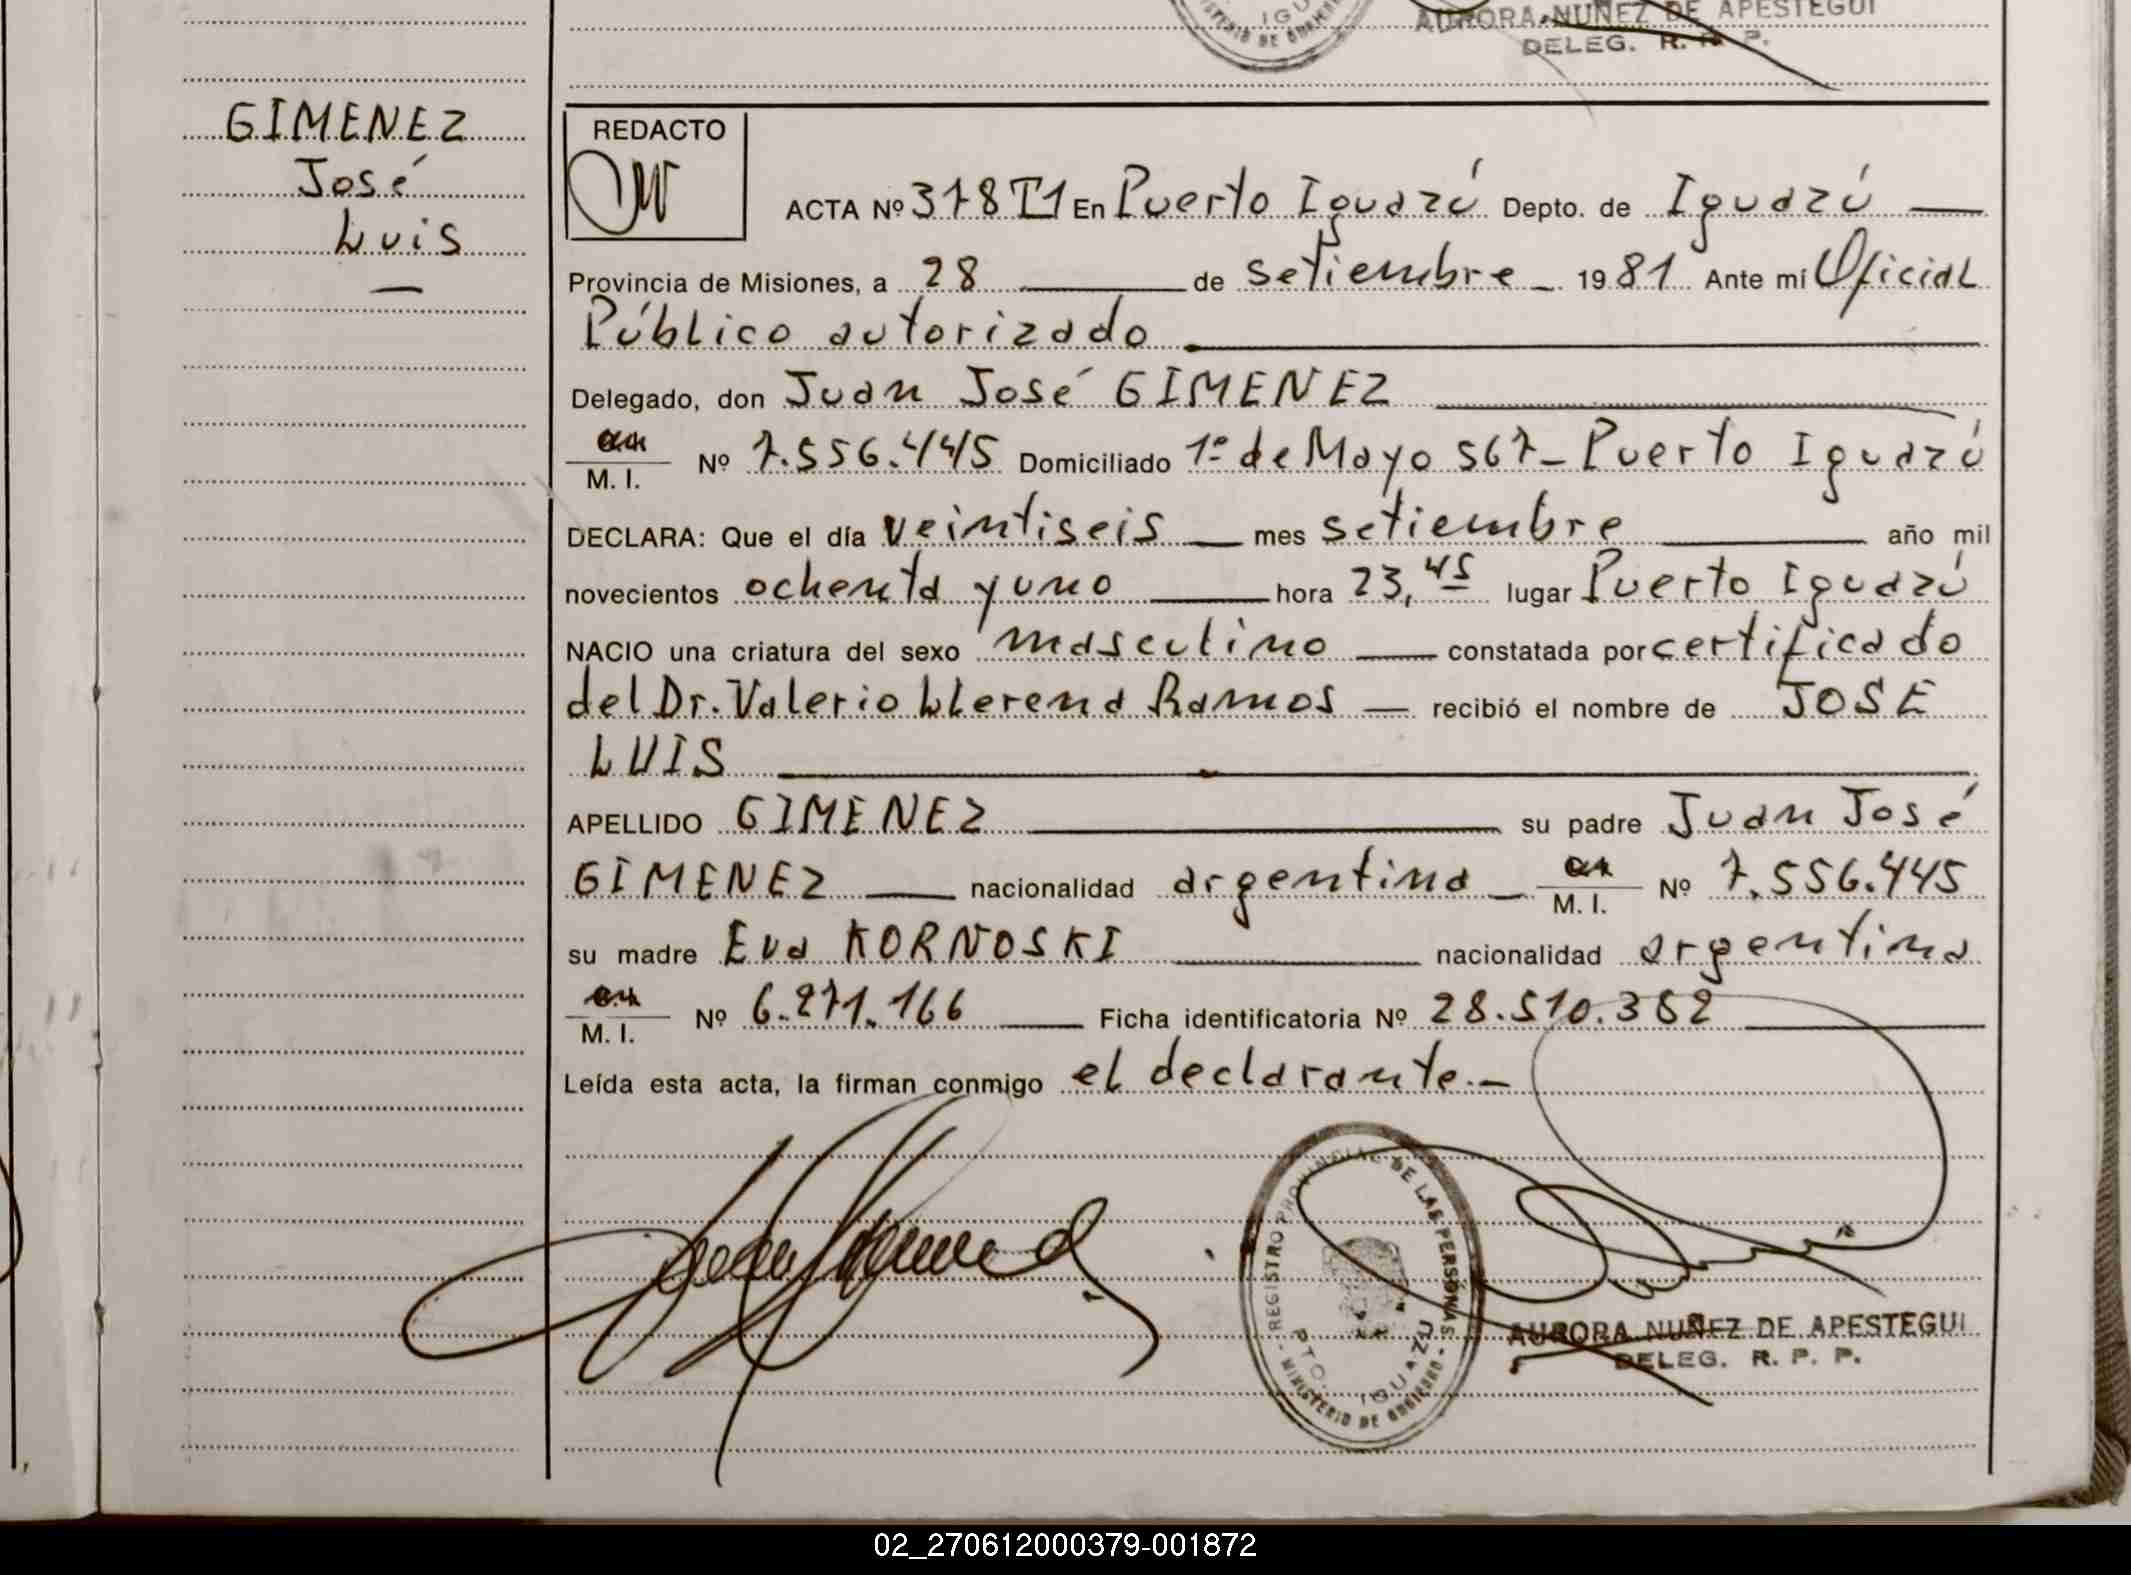 IGU
MINISTERIO DE GOBIERNO
AURORA NUÑEZ DE APESTEGUI
DELEG. R. P. P.
GIMENEZ
José
Luis
REDACTO
ACTA Nº 378 T1 En Puerto Iguazú Depto. de Iguazú
Provincia de Misiones, a 28 de setiembre 1981 Ante mí Oficial
Público autorizado
Delegado, don Juan José GIMENEZ
M. I. Nº 7.556.445 Domiciliado 1º de Mayo 567 - Puerto Iguazú
DECLARA: Que el día veintiseis mes setiembre año mil
novecientos ochenta y uno hora 23,45 lugar Puerto Iguazú
NACIO una criatura del sexo masculino constatada por certificado
del Dr. Valerio Llerena Ramos recibió el nombre de JOSE
LUIS
APELLIDO GIMENEZ su padre Juan José
GIMENEZ nacionalidad argentina M. I. Nº 7.556.445
su madre Eva KORNOSKI nacionalidad argentina
M. I. Nº 6.271.166 Ficha identificatoria Nº 28.510.362
Leída esta acta, la firman conmigo el declarante.-
REGISTRO PROVINCIAL DE LAS PERSONAS
PTO. IGUAZU
MINISTERIO DE GOBIERNO
AURORA NUÑEZ DE APESTEGUI
DELEG. R. P. P.
02_270612000379-001872